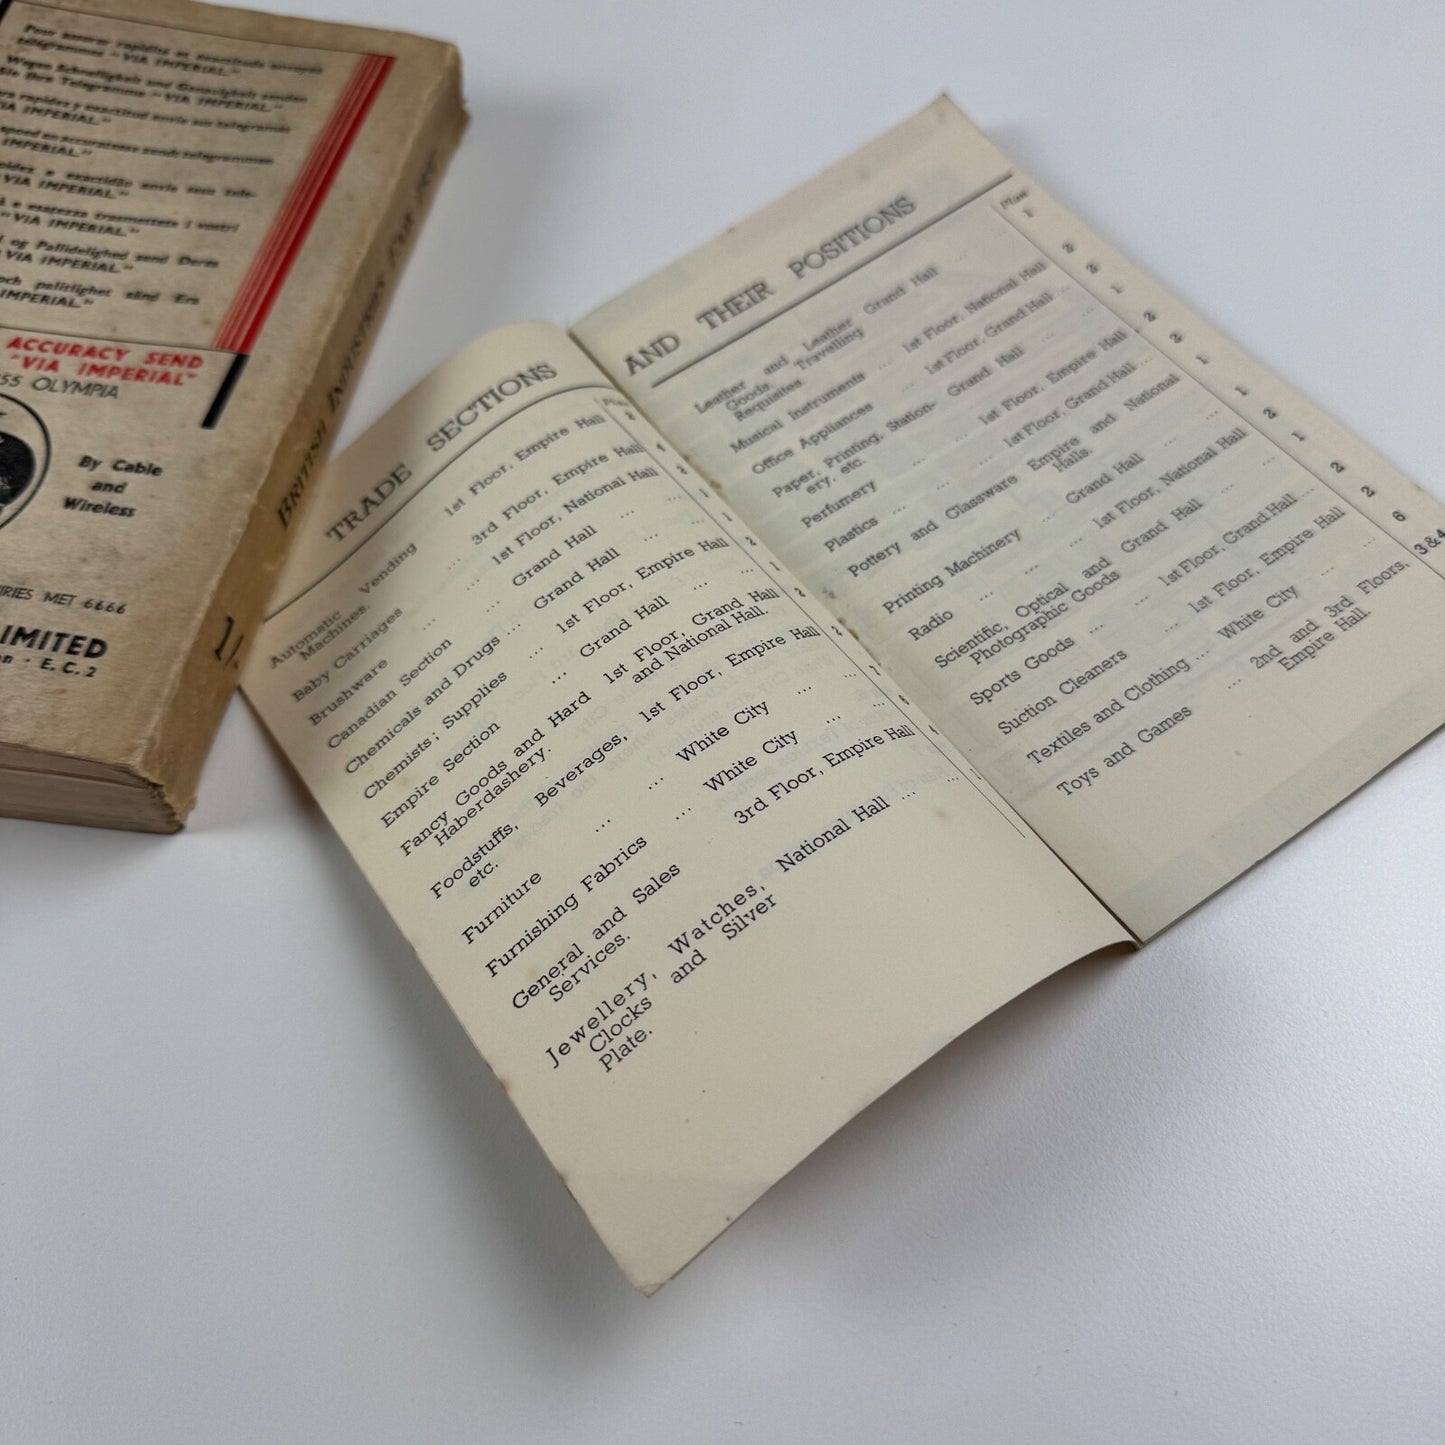 Pour assurer rapidité et exactitude envoyez
télégrammes "VIA IMPERIAL."
Wegen Schnelligkeit und Genauigkeit senden
Sie Ihre Telegramme "VIA IMPERIAL."
rapidez y exactitud envie sus telegramas
VIA IMPERIAL."
speed en accuratesse zendt telegrammen
IMPERIAL."
e exactidão envie seus tele-
"VIA IMPERIAL."
e esatezza trasmettete i vostri
"VIA IMPERIAL."
og Pallidelighed send Deres
VIA IMPERIAL."
och palitlighet sänd Era
IMPERIAL."
ACCURACY SEND
"VIA IMPERIAL"
55 OLYMPIA
By Cable
and
Wireless
MET 6666
LIMITED
E.C.2
BRITISH INDUSTRIES FAIR
1/-
TRADE SECTIONS
Plan
Automatic Vending
Machines. 1st Floor, Empire Hall 2
Baby Carriages ... 3rd Floor, Empire Hall 4
Brushware ... 1st Floor, National Hall 2
Canadian Section ... Grand Hall ... ... 1
Chemicals and Drugs ... Grand Hall ... ... 1
Chemists; Supplies 1st Floor, Empire Hall 2
Empire Section ... Grand Hall ... ... 1
Fancy Goods and Hard 1st Floor, Grand Hall 2
Haberdashery. and National Hall.
Foodstuffs, Beverages, 1st Floor, Empire Hall 2
etc.
Furniture ... ... White City ... ...
Furnishing Fabrics ... White City ... ... 6
General and Sales 3rd Floor, Empire Hall 4
Services.
Jewellery, Watches, National Hall ... ... 1
Clocks and Silver
Plate.
AND THEIR POSITIONS
Plan
Leather and Leather Grand Hall ... ... 1
Goods, Travelling
Requisites.
Musical Instruments ... 1st Floor, National Hall 2
Office Appliances ... 1st Floor, Grand Hall ... 2
Paper, Printing, Station- Grand Hall ... 1
ery, etc.
Perfumery ... ... 1st Floor, Empire Hall 2
Plastics ... ... 1st Floor, Grand Hall ... 2
Pottery and Glassware Empire and National 1
Halls.
Printing Machinery ... Grand Hall ... ... 1
Radio ... ... 1st Floor, National Hall 2
Scientific, Optical and Grand Hall ... 1
Photographic Goods
Sports Goods ... 1st Floor, Grand Hall ... 2
Suction Cleaners ... 1st Floor, Empire Hall 2
Textiles and Clothing ... White City ... 6
Toys and Games ... 2nd and 3rd Floors, 3 & 4
Empire Hall.